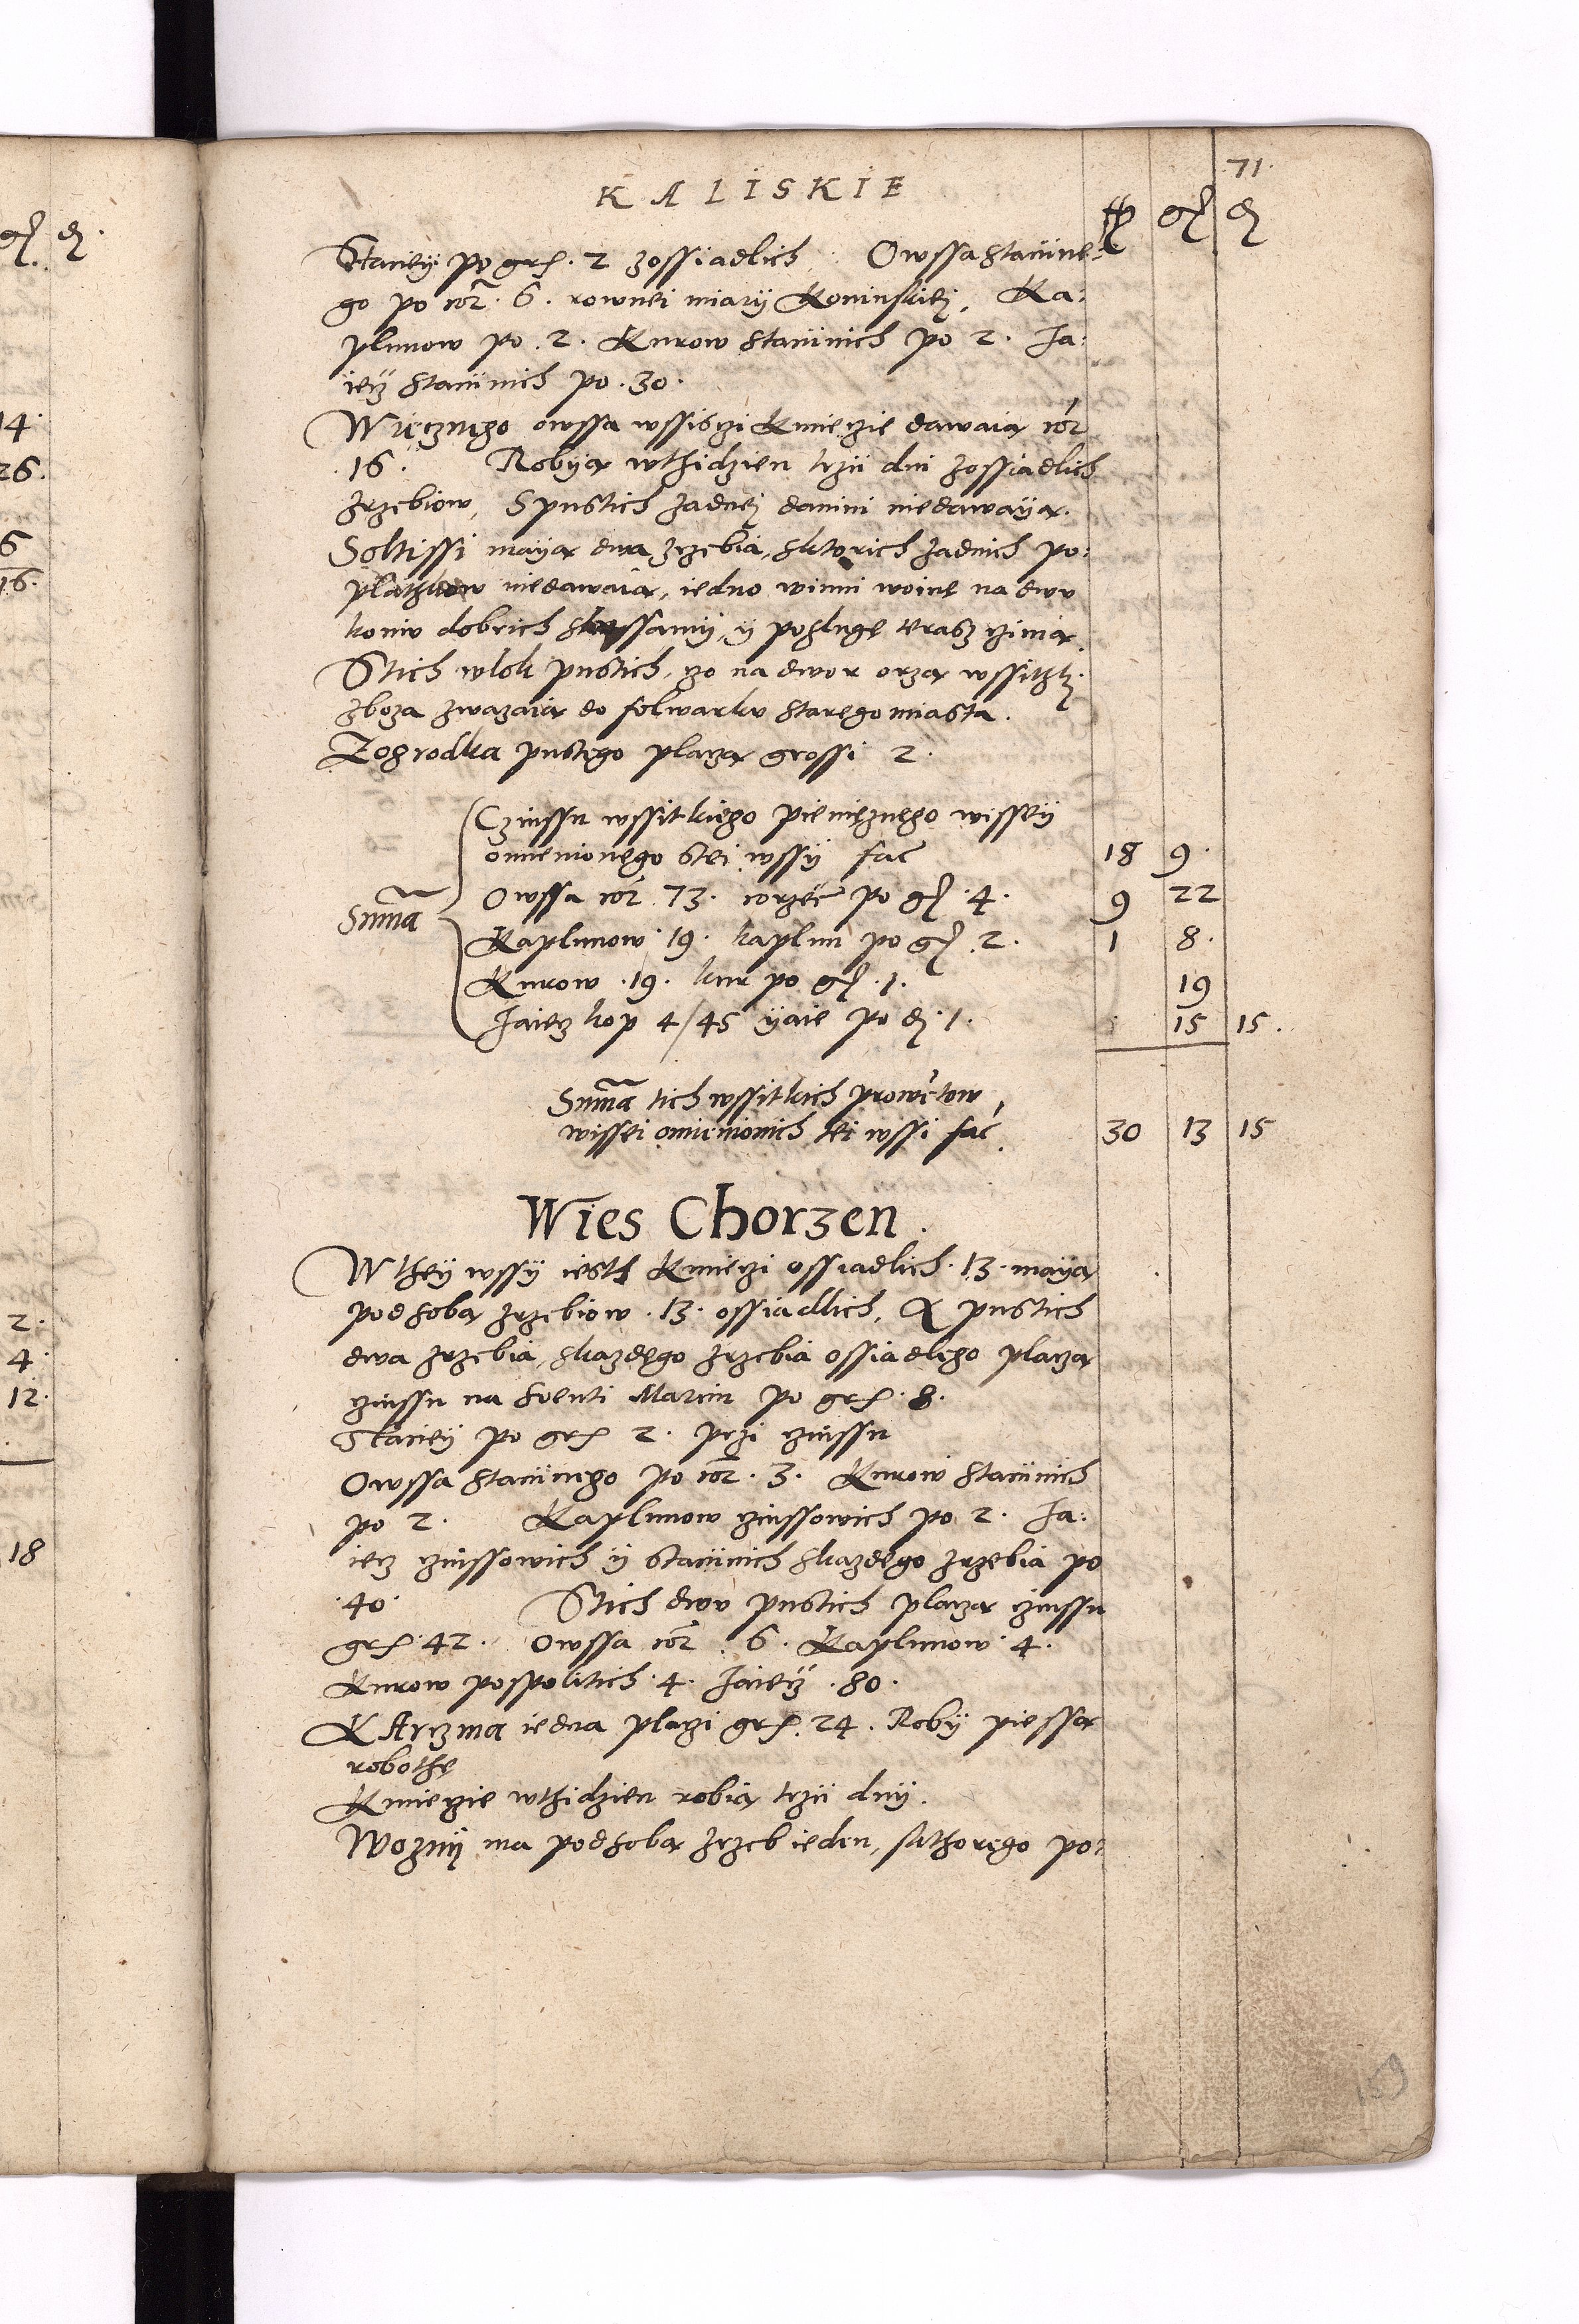 71.
KALISKIE
fl gr d
Staciey po grs. 2 zossiadlich, Owssa staciine-
go po cor. 6. rownei miary Koninskiej, Ka:
plunow po. 2. Kurow staciinich po 2. Ja:
iecz staciinich po. 30.
Wiecznego owssa wssisczi Kmieczie dawaia cor
16. Robya wthidzien trzii dni zossiadlich
zrzebiow, Spustich zadnej danini niedawaya.
Soltissi maya dwa zrzebia, sktorich zadnich po:
plathkow niedawaia, iedno winni woine na dwu
koniu dobrich, y posluge terasz czinia.
Stich wlok pustich, czo na dwor orza wssitzki
zboza zwazaia do folwarku starego miasta.
Zogrodka pustego placza grossi 2.
Czinssu wssitkiego pienieznego wissey
omienionego stei wssÿ fac 18 9.
Summa
Owssa cor 73. corzec po gr. 4. 9 22
Kaplunow 19. kaplun po gr. 2. 1 8.
Kurow. 19. kur po gr. 1. 19
Jaiecz kop 4/45 ÿaie po d. 1. 15 15.
Summa tich wssitkich prowentow
wissei omienionich tei wssi fac. 30 13 15
Wies Chorzen.
W they wssÿ iesth Kmieczi ossiadlich. 13. maya
pod soba zrzebiow. 13. ossiadlich, A pustich
dwa zrzebia, skazdego zrzebia ossiadlego placza
czinssu na swenti Marcin po grs. 8.
Staciey po grs 2. przi czinssu
Owssa staciinego po cor. 3. Kurow staciinich
po 2. Kaplunow czinssowich po 2. Ja:
iecz czinssowich ÿ staciinich skazdego zrzebia po
40. Stich dwu pustich placza czinssu
grs. 42. Owssa cor. 6. Kaplunow. 4.
Kurow pospolitich. 4. Jaiecz. 80.
KArczma iedna placzi grs. 24. Robÿ piessa
robothe
Kmieczie wthidzien robia trzii dnÿ.
Woznÿ ma pod soba zrzeb ieden, skthorego po:
159